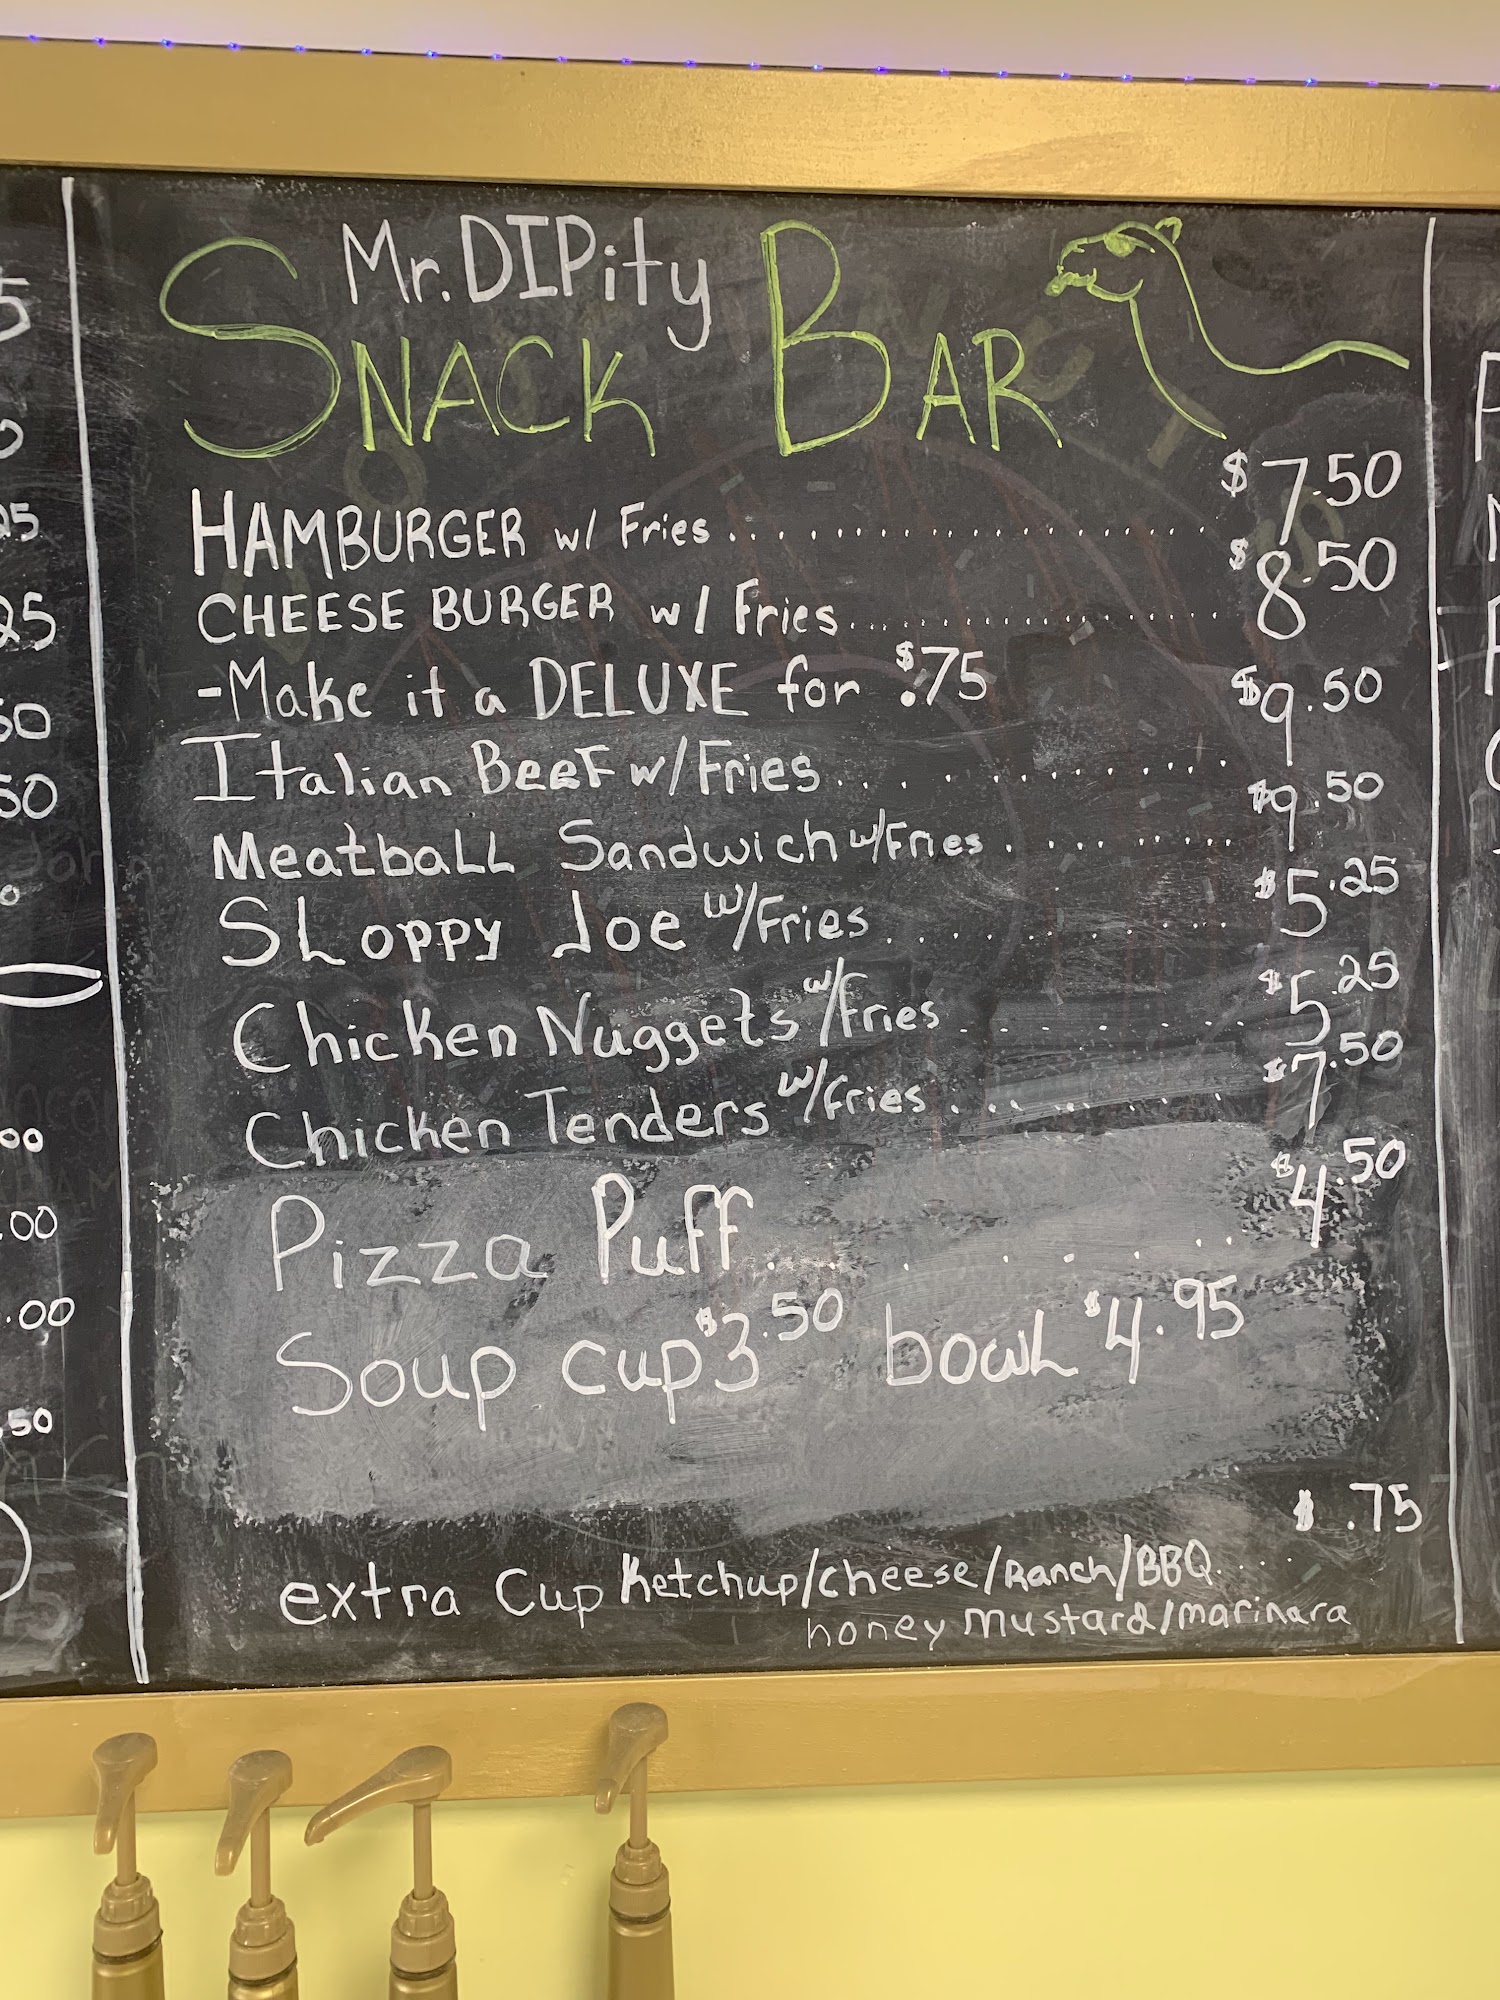 Mr. DIPity
SNACK BAR
HAMBURGER w/ Fries.................... $7.50
CHEESE BURGER w/ Fries.................. $8.50
-Make it a DELUXE for $.75
Italian BeeF w/Fries.............. $9.50
MeatbaLL Sandwich w/Fries.......... $9.50
SLoppy Joe w/Fries............. $5.25
Chicken Nuggets w/Fries.......... $5.25
Chicken Tenders w/Fries.......... $7.50
Pizza Puff......... $4.50
Soup cup $3.50 bowL $4.95
extra Cup Ketchup/cheese/Ranch/BBQ.... $.75
honey mustard/marinara